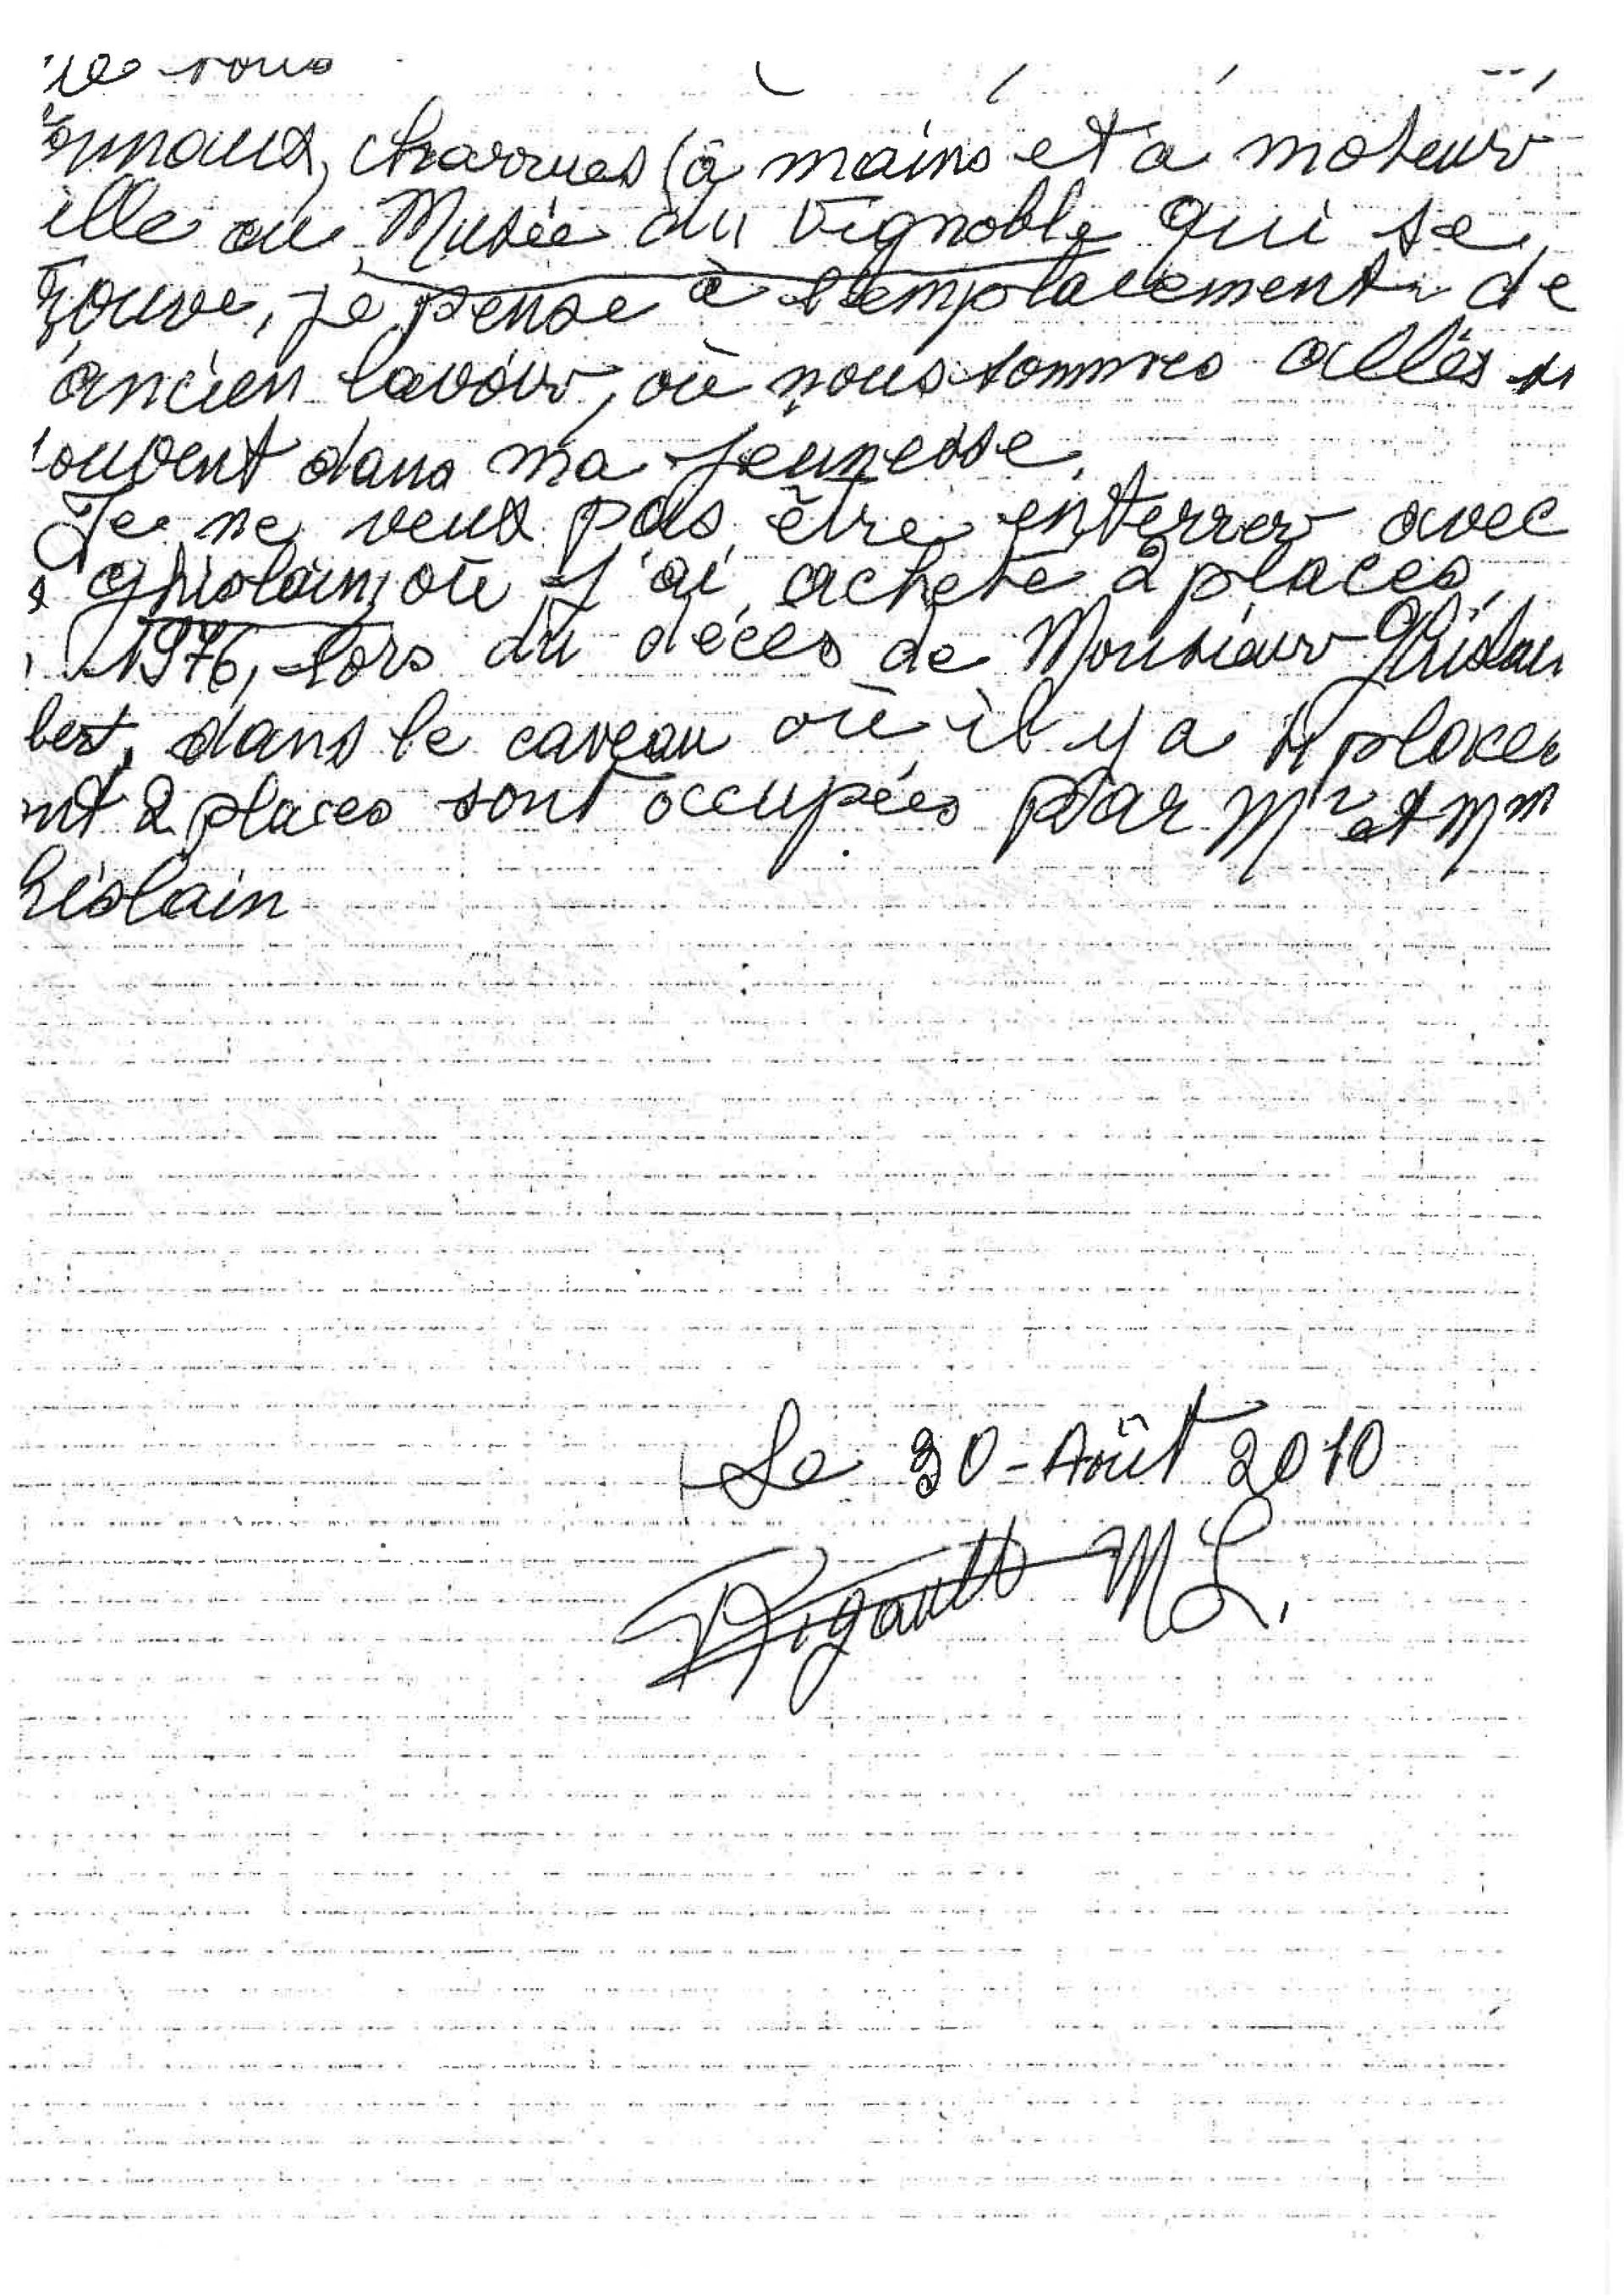 vous
onnaux, charrues (à mains et à moteur
ille au Musée du Vignoble qui se
rouve, je pense à l'emplacement de
ancien lavoir, où nous sommes allés
souvent dans ma jeunesse.
Je ne veux pas être enterrer avec
s Ghislain, où j'ai acheté 2 places,
1976, lors du décès de Monsieur Ghislain
bert, dans le caveau où il y a 4 places
nt 2 places sont occupées par Mr et Mm
hislain
Le 30 - Août 2010
Rigault M L.